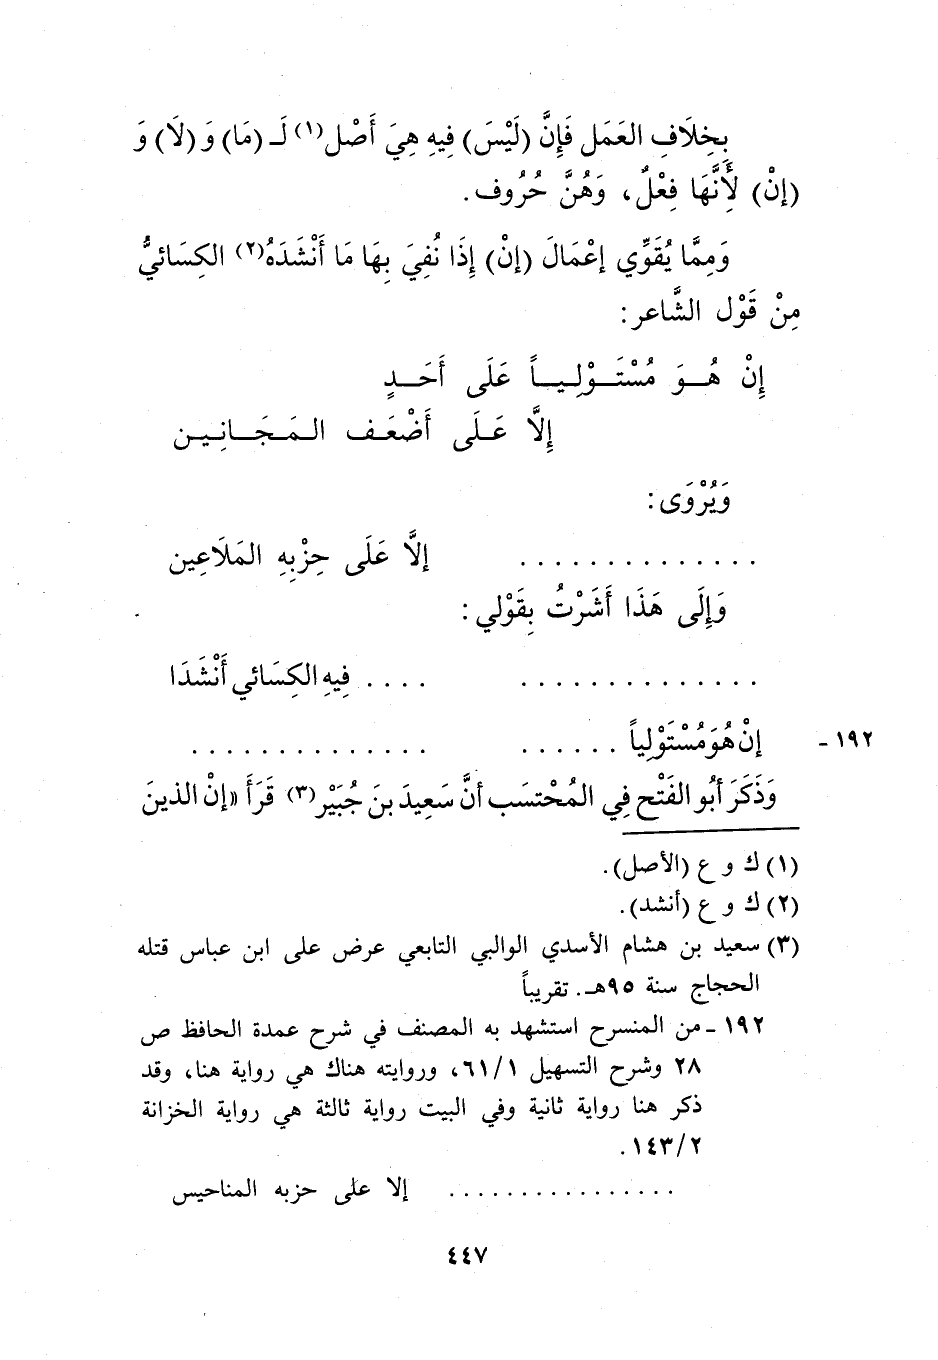 بِخِلَافِ العَمَلِ فَإِنَّ (لَيْسَ) فِيهِ هِيَ أَصْل(١) لَـ (مَا) وَ (لَا) وَ
(إنْ) لِأَنَّهَا فِعْلٌ، وَهُنَّ حُرُوف.
وَمِمَّا يُقَوِّي إعْمَالَ (إنْ) إذَا نُفِيَ بِهَا مَا أَنْشَدَهُ(٢) الكِسَائيُّ
مِنْ قَوْل الشَّاعر:
إِنْ هُـوَ مُسْتَـوْلِـيـاً عَلَى أَحَـدٍ
إِلَّا عَـلَـى أَضْعَـف المَـجَـانِيـن
وَيُرْوَى:
. . . . . . . . . . . . . . إلَّا عَلَى حِزْبِهِ المَلَاعِين
وَإِلَى هَذَا أَشَرْتُ بِقَوْلي:
. . . . . . . . . . . . . . . . . . فِيهِ الكِسَائي أَنْشَدَا
١٩٢ - إنْ هُوَ مُسْتَوْلِياً . . . . . . . . . . . . . . . . . . . .
وَذَكَرَ أبُو الفَتْحِ فِي المُحْتسَب أنَّ سَعِيدَ بنَ جُبَيْر(٣) قَرَأَ «إنْ الذينَ
(١) ك و ع (الأصل).
(٢) ك و ع (أنشد).
(٣) سعيد بن هشام الأسدي الوالبي التابعي عرض على ابن عباس قتله
الحجاج سنة ٩٥هـ. تقريباً
١٩٢ - من المنسرح استشهد به المصنف في شرح عمدة الحافظ ص
٢٨ وشرح التسهيل ٦١/١، وروايته هناك هي رواية هنا، وقد
ذكر هنا رواية ثانية وفي البيت رواية ثالثة هي رواية الخزانة
١٤٣/٢.
. . . . . . . . . . . . . . . . إلا على حزبه المناحيس
٤٤٧